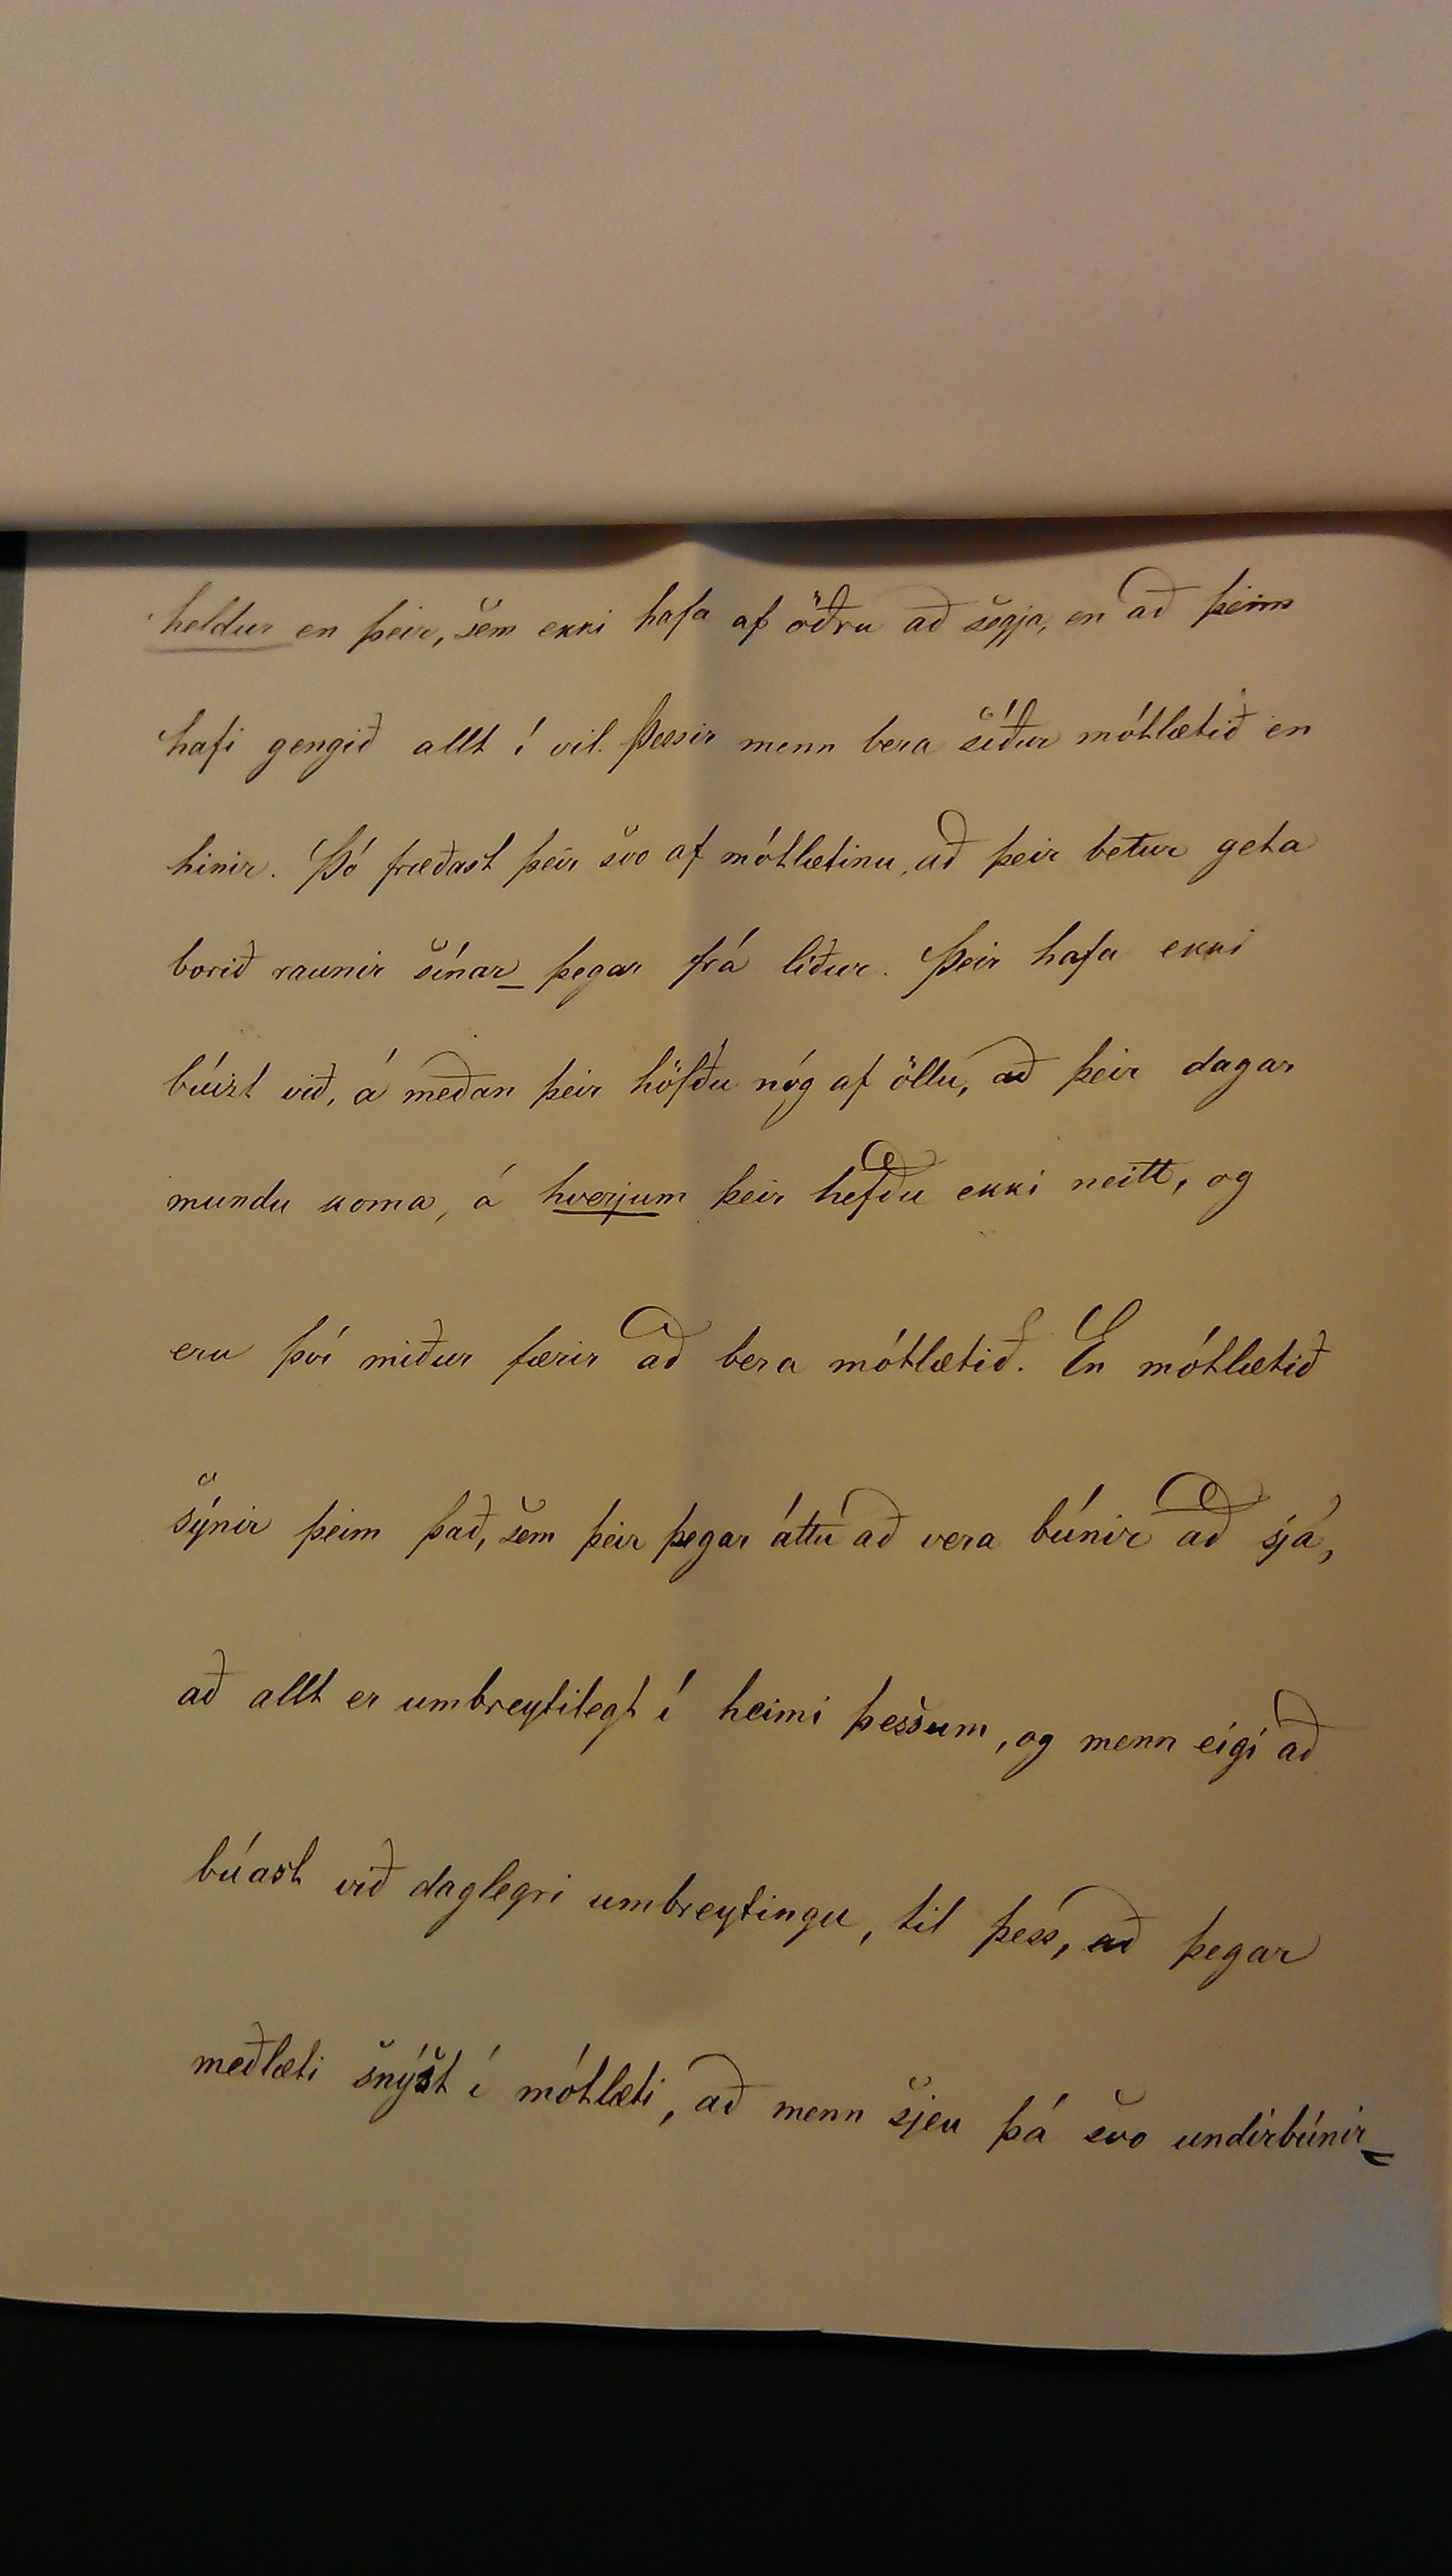 heldur en þeir, sem ekki hafa af öðru að segja, en að þeim
hafi gengið allt í vil. Þessir menn bera síður mótlætið en
hinir. Þó fræðast þeir svo af mótlætinu, að þeir betur geta
borið raunir sínar_ þegar frá líður. Þeir hafa ekki
búizt við, á meðan þeir höfðu nóg af öllu, að þeir dagar
mundu koma, á hverjum þeir hefðu ekki neitt, og
eru því miður færir að bera mótlætið. En mótlætið
sýnir þeim það, sem þeir þegar áttu að vera búnir að sjá,
að allt er umbreytilegt í heimi þessum, og menn eigi að
búast við daglegri umbreytingu, til þess, að þegar
meðlæti snýst í mótlæti, að menn sjeu þá svo undirbúnir_